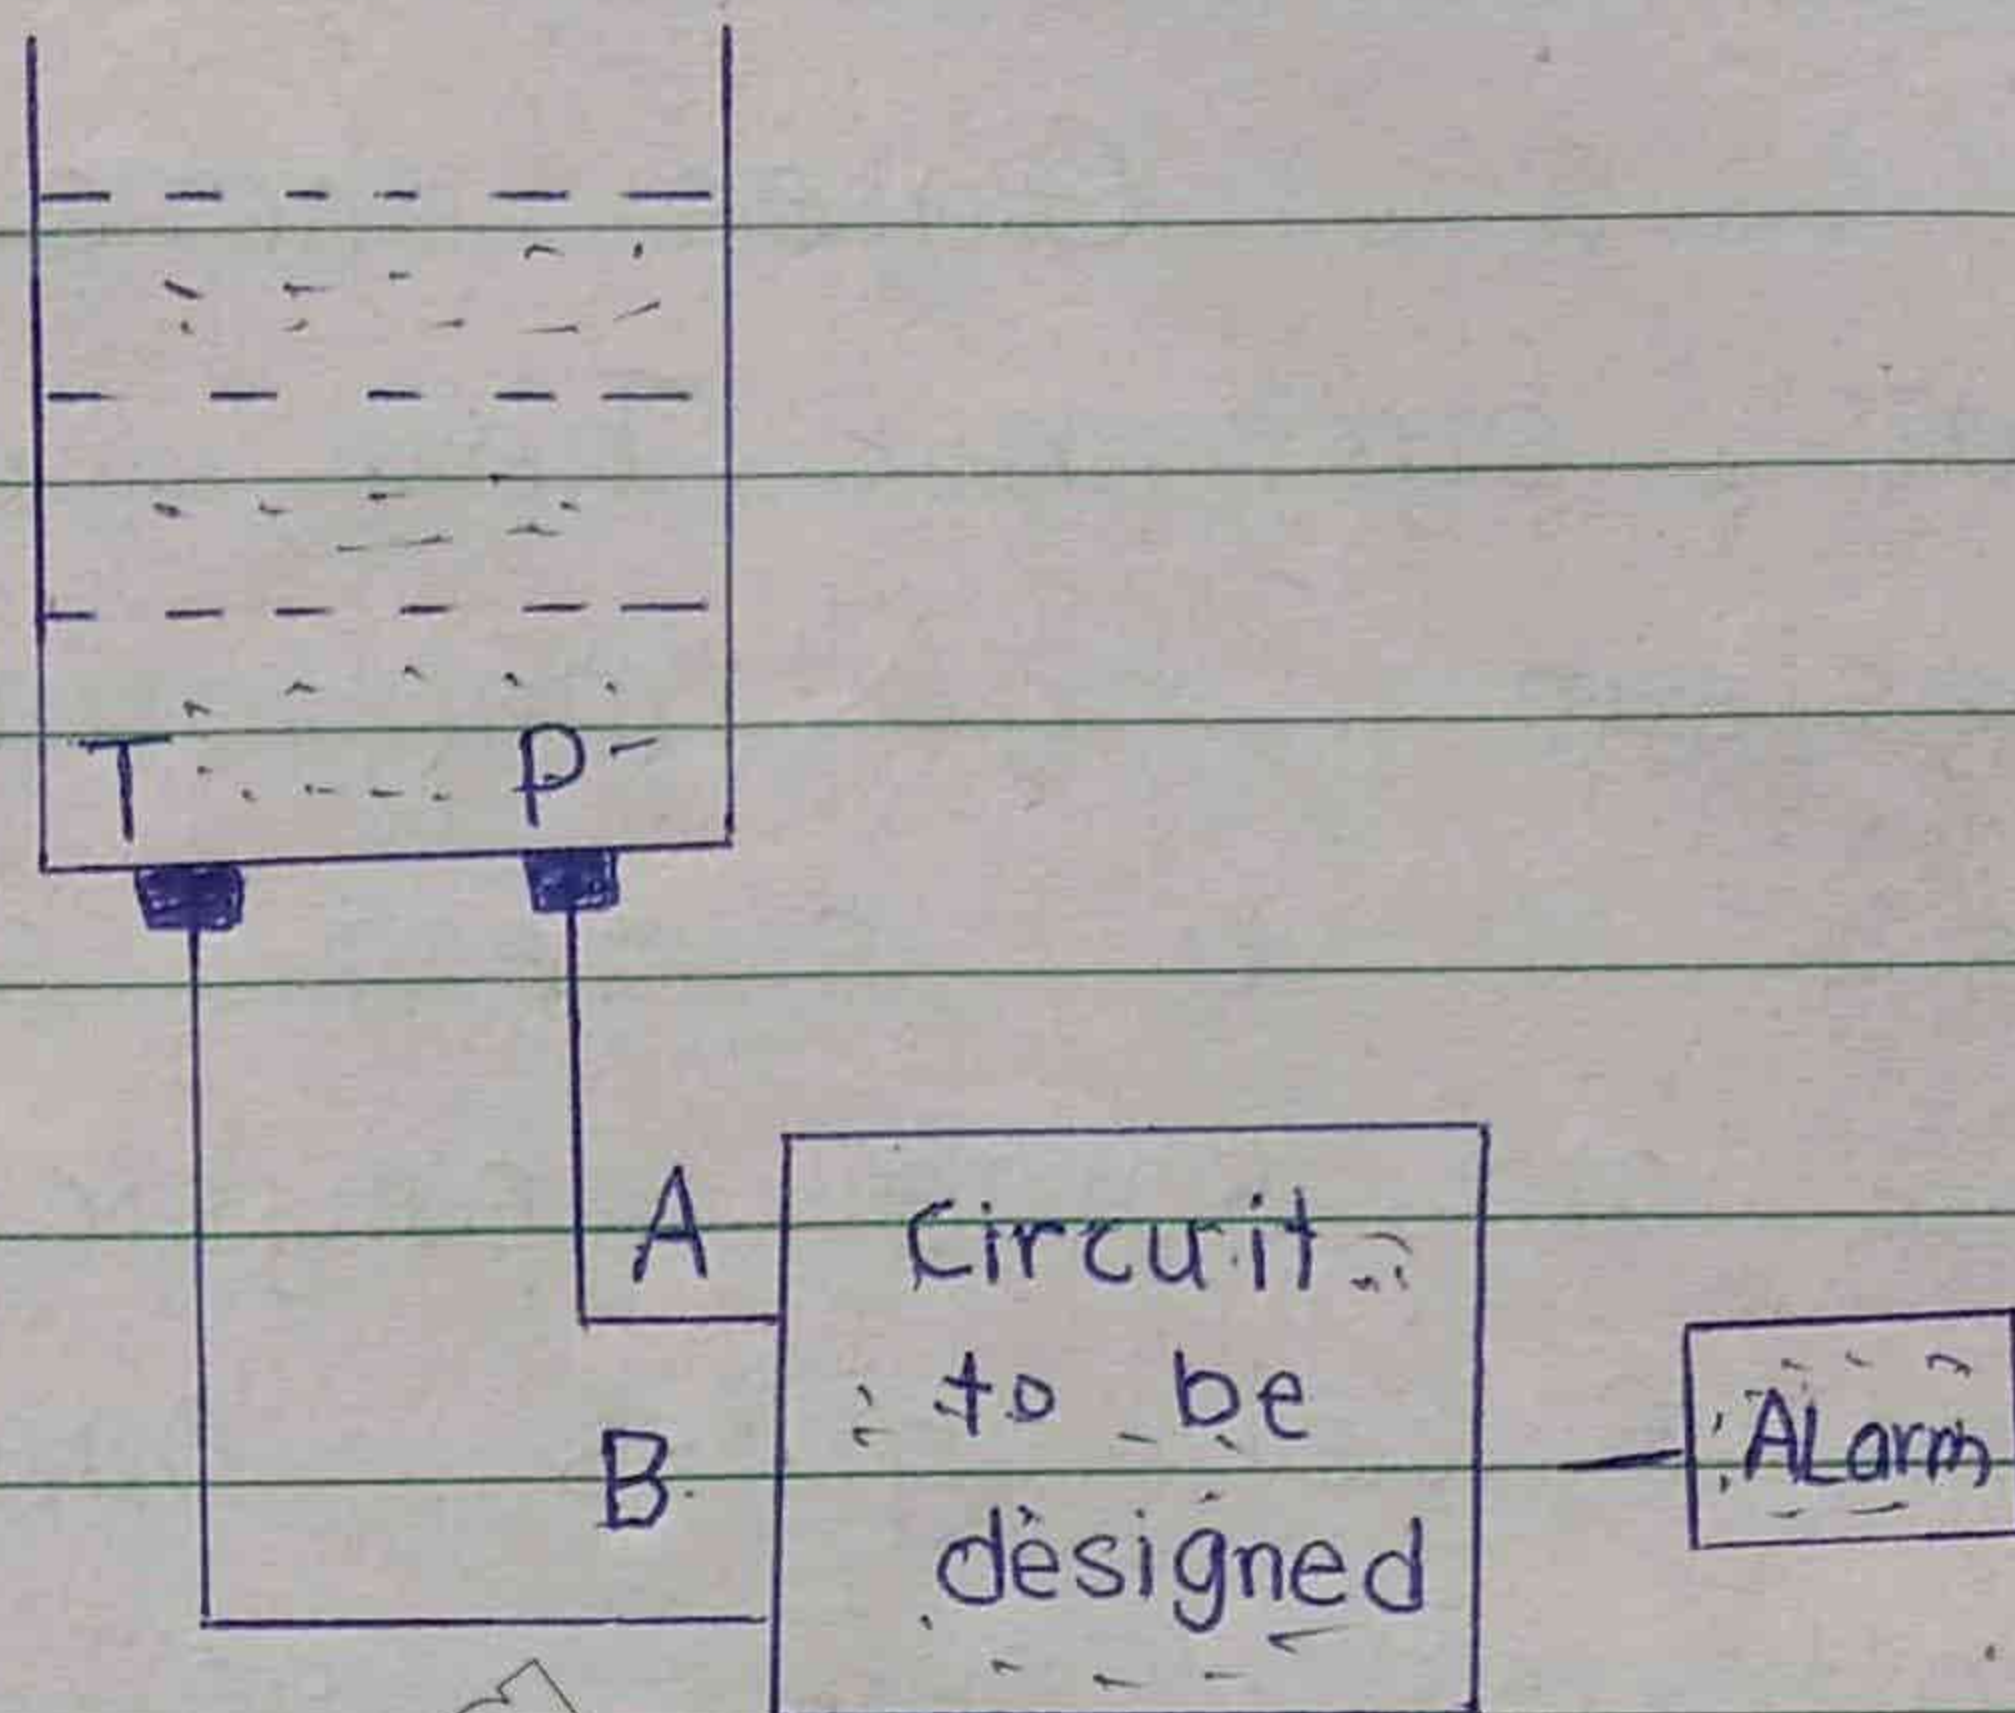 T P
A
B
Circuit
to be
designed
ALarm